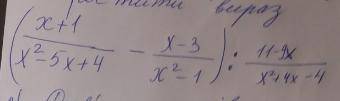 вираз
(x+1 / x²-5x+4 - x-3 / x²-1) : 11-9x / x²+4x-4